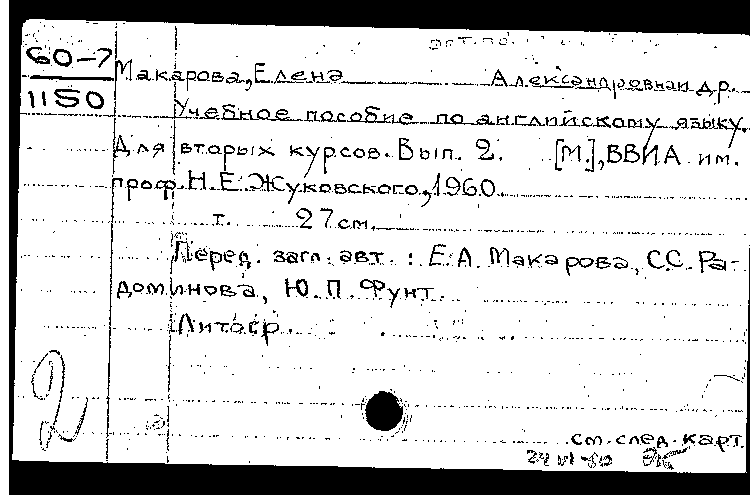 60-7
1150
Макарова, Елена Александровна и др.
Учебное пособие по английскому языку.
Для вторых курсов. Вып. 2. [М.], ВВИА им.
проф. Н.Е. Жуковского, 1960.
т. 27 см.
Перед. загл. авт.: Е.А. Макарова, С.С. Ра-
доминова, Ю.П. Фунт.
Литогр.
2
см. след. карт.